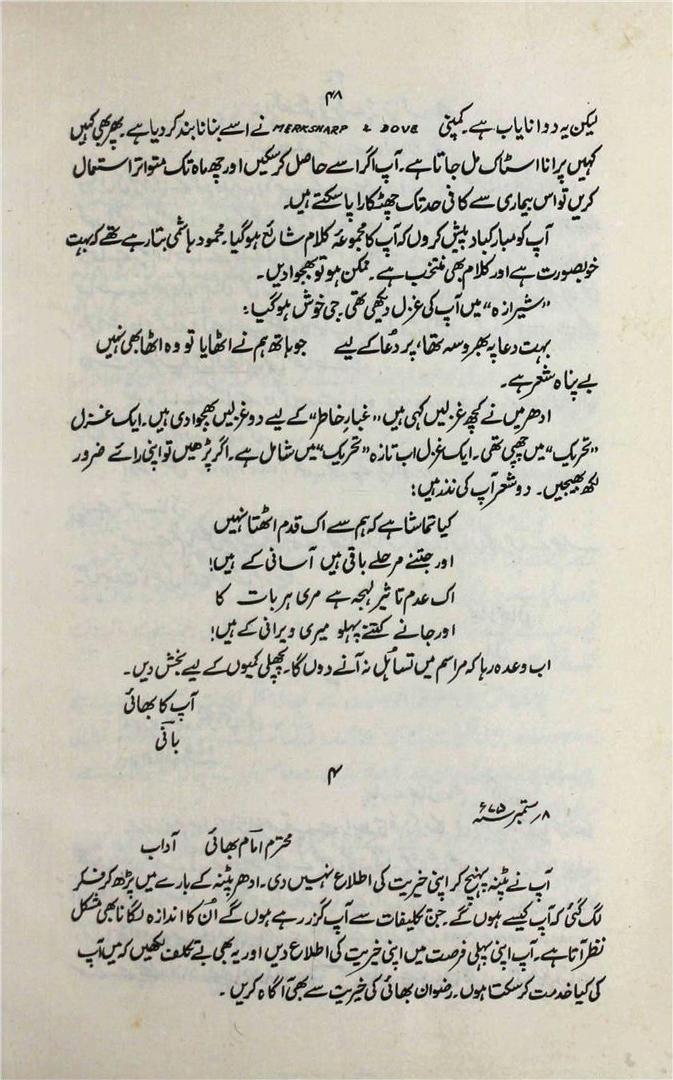 ۴۸
لیکن یہ دوا نایاب ہے۔ کمپنی MERKSHARP & DOVE نے اسے بنانا بند کر دیا ہے۔ پھر بھی کہیں
کہیں پرانا اسٹاک مل جاتا ہے۔ آپ اگر اسے حاصل کر سکیں اور چھ ماہ تک متواتر استعمال
کریں تو اس بیماری سے کافی حد تک چھٹکارا پا سکتے ہیں۔
آپ کو مبارکباد پیش کروں کہ آپ کا مجموعۂ کلام شائع ہو گیا۔ محمود ہاشمی بتا رہے تھے کہ بہت
خوبصورت ہے اور کلام بھی منتخب ہے۔ ممکن ہو تو بھجوا دیں۔
"شیرازہ" میں آپ کی غزل دیکھی تھی۔ جی خوش ہو گیا:
بہت دعا پہ بھروسہ تھا، پر دُعا کے لیے جو ہاتھ ہم نے اٹھایا تو وہ اٹھا بھی نہیں
بے پناہ شعر ہے۔
ادھر میں نے کچھ غزلیں کہی ہیں "غبارِ خاطر" کے لیے دو غزلیں بھجوا دی ہیں۔ ایک غزل
"تحریک" میں چھپی تھی۔ ایک غزل اب تازہ "تحریک" میں شامل ہے۔ اگر پڑھیں تو اپنی رائے ضرور
لکھ بھیجیں۔ دو شعر آپ کی نذر ہیں:
کیا تماشا ہے کہ ہم سے اک قدم اٹھتا نہیں
اور جتنے مرحلے باقی ہیں آسانی کے ہیں!
اک عدم تاثیر لہجہ ہے مری ہر بات کا
اور جانے کتنے پہلو میری ویرانی کے ہیں!
اب وعدہ رہا کہ مراسم میں تساہل نہ آنے دوں گا۔ پچھلی کمیوں کے لیے بخش دیں۔
آپ کا بھائی
بانیؔ
۴
۸؍ ستمبر ۷۵ء
محترم امام بھائی آداب
آپ نے پٹنہ پہنچ کر اپنی خیریت کی اطلاع نہیں دی۔ ادھر پٹنہ کے بارے میں پڑھ کر فکر
لگ گئی کہ آپ کیسے ہوں گے۔ جن تکلیفات سے آپ گزر رہے ہوں گے اُن کا اندازہ لگانا بھی مشکل
نظر آتا ہے۔ آپ اپنی پہلی فرصت میں اپنی خیریت کی اطلاع دیں اور یہ بھی بے تکلف لکھیں کہ میں آپ
کی کیا خدمت کر سکتا ہوں۔ رضوان بھائی کی خیریت سے بھی آگاہ کریں۔